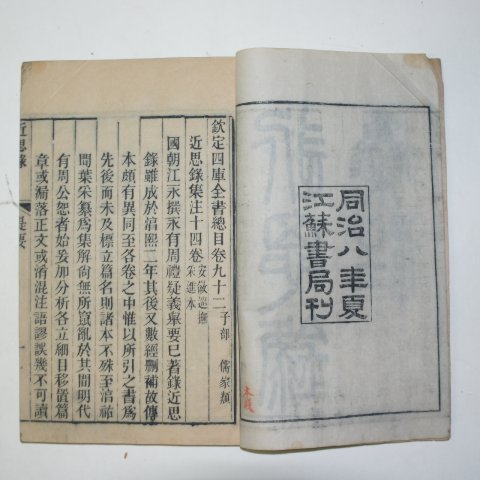 同治八年夏
江蘇書局刊
欽定四庫全書總目卷九十二 子部 儒家類
近思錄集注十四卷 安徽巡撫采進本
國朝江永撰永有周禮疑義舉要已著錄近思
錄雖成於淳熙二年其後又數經刪補故傳
本頗有異同至各卷之中惟以所引之書爲
先後而未及標立篇名則諸本不殊至淳祐
間葉采纂爲集解尙無所竄亂於其間明代
有周公恕者始妄加分析各立細目移置篇
章或漏落正文或淆混注語謬誤幾不可讀
近思錄
提要